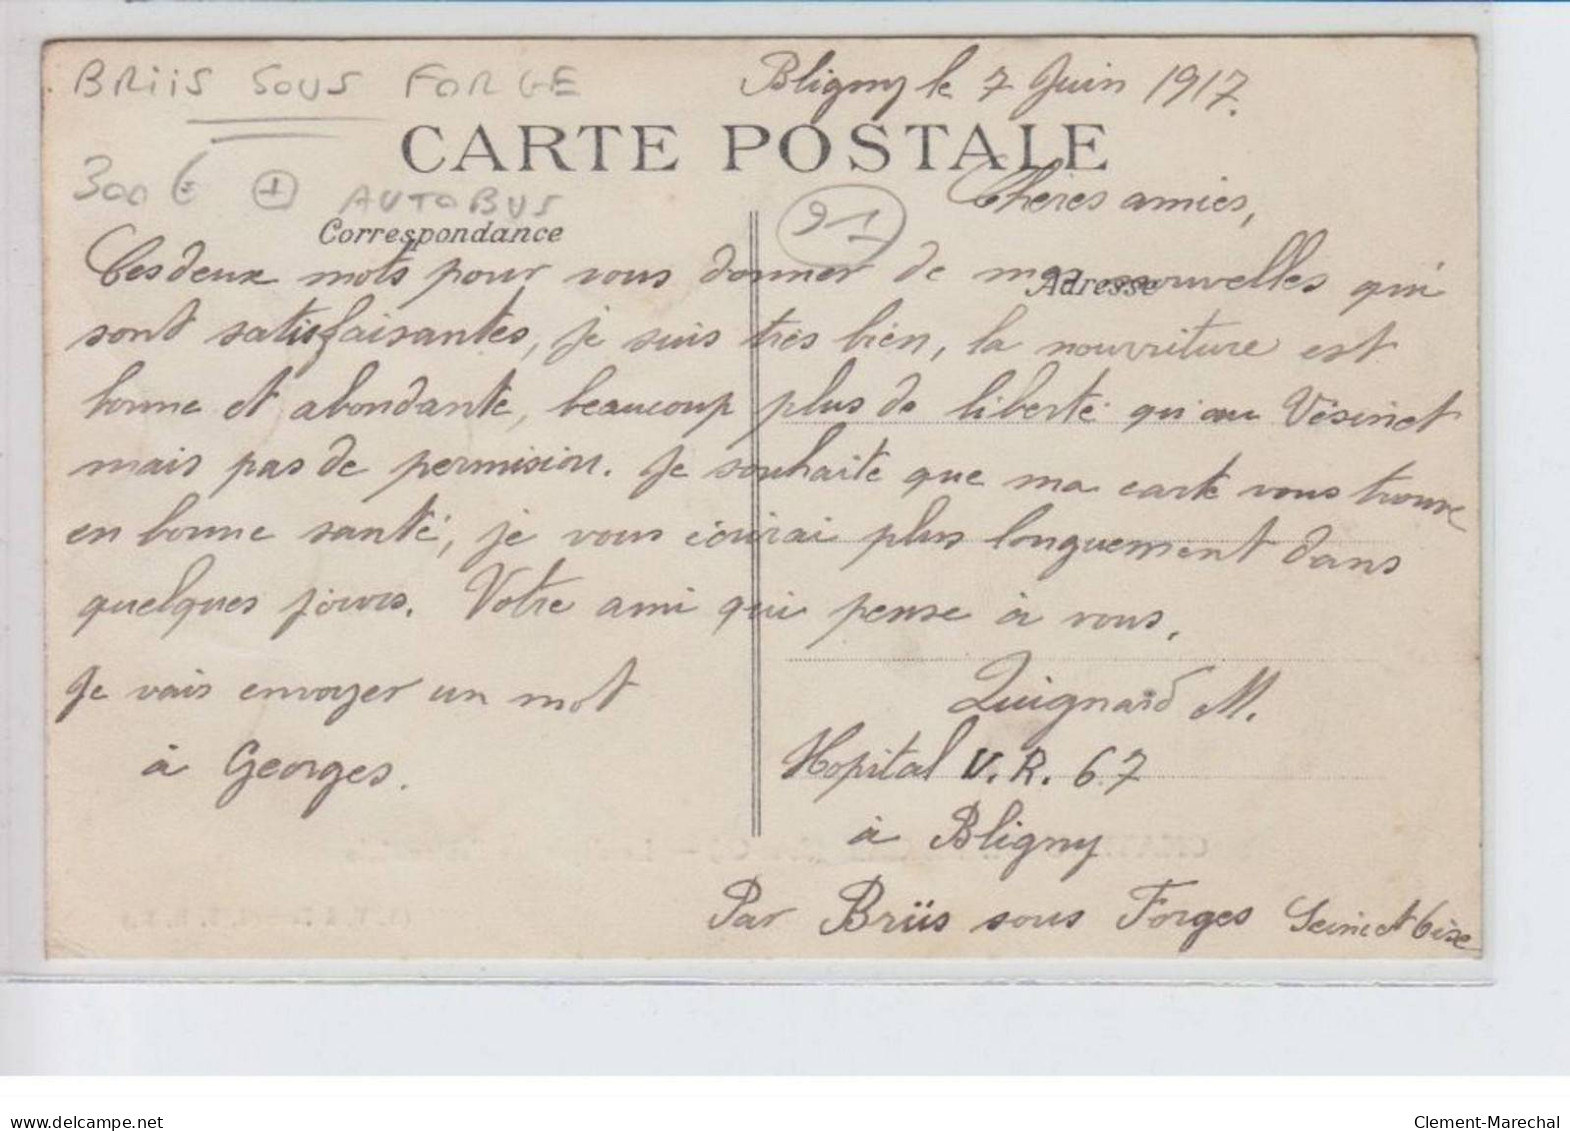 BRIIS SOUS FORGE
Bligny le 7 Juin 1917.
CARTE POSTALE
300 € + AUTOBUS
91
Chères amies,
Correspondance
Adresse
Ces deux mots pour vous donner de mes nouvelles qui
sont satisfaisantes, je suis très bien, la nourriture est
bonne et abondante, beaucoup plus de liberté qu'au Vésinet
mais pas de permision. Je souhaite que ma carte vous trouve
en bonne santé, je vous écrirai plus longuement dans
quelques jours. Votre ami qui pense à vous.
Je vais envoyer un mot
à Georges.
Quignard M.
Hopital V.R. 67
à Bligny
Par Briis sous Forges Seine et Oise
www.delcampe.net
Clement-Marechal